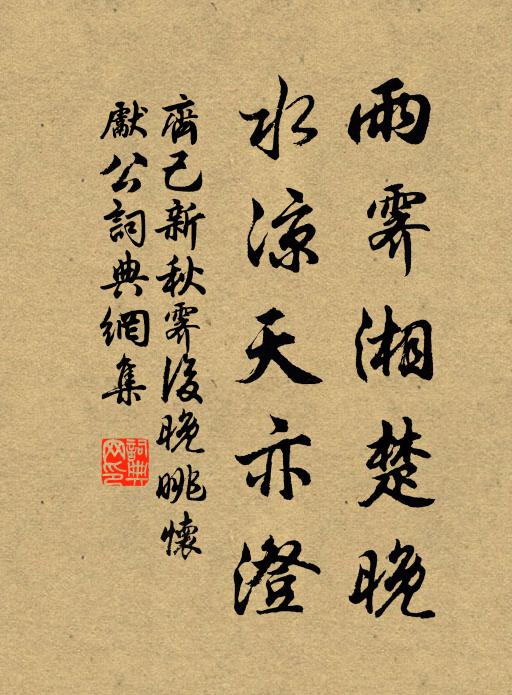 雨霽湘楚晚
水涼天亦澄
齊己新秋霽後晚眺懷
獻公詞典網集
詞典
网印